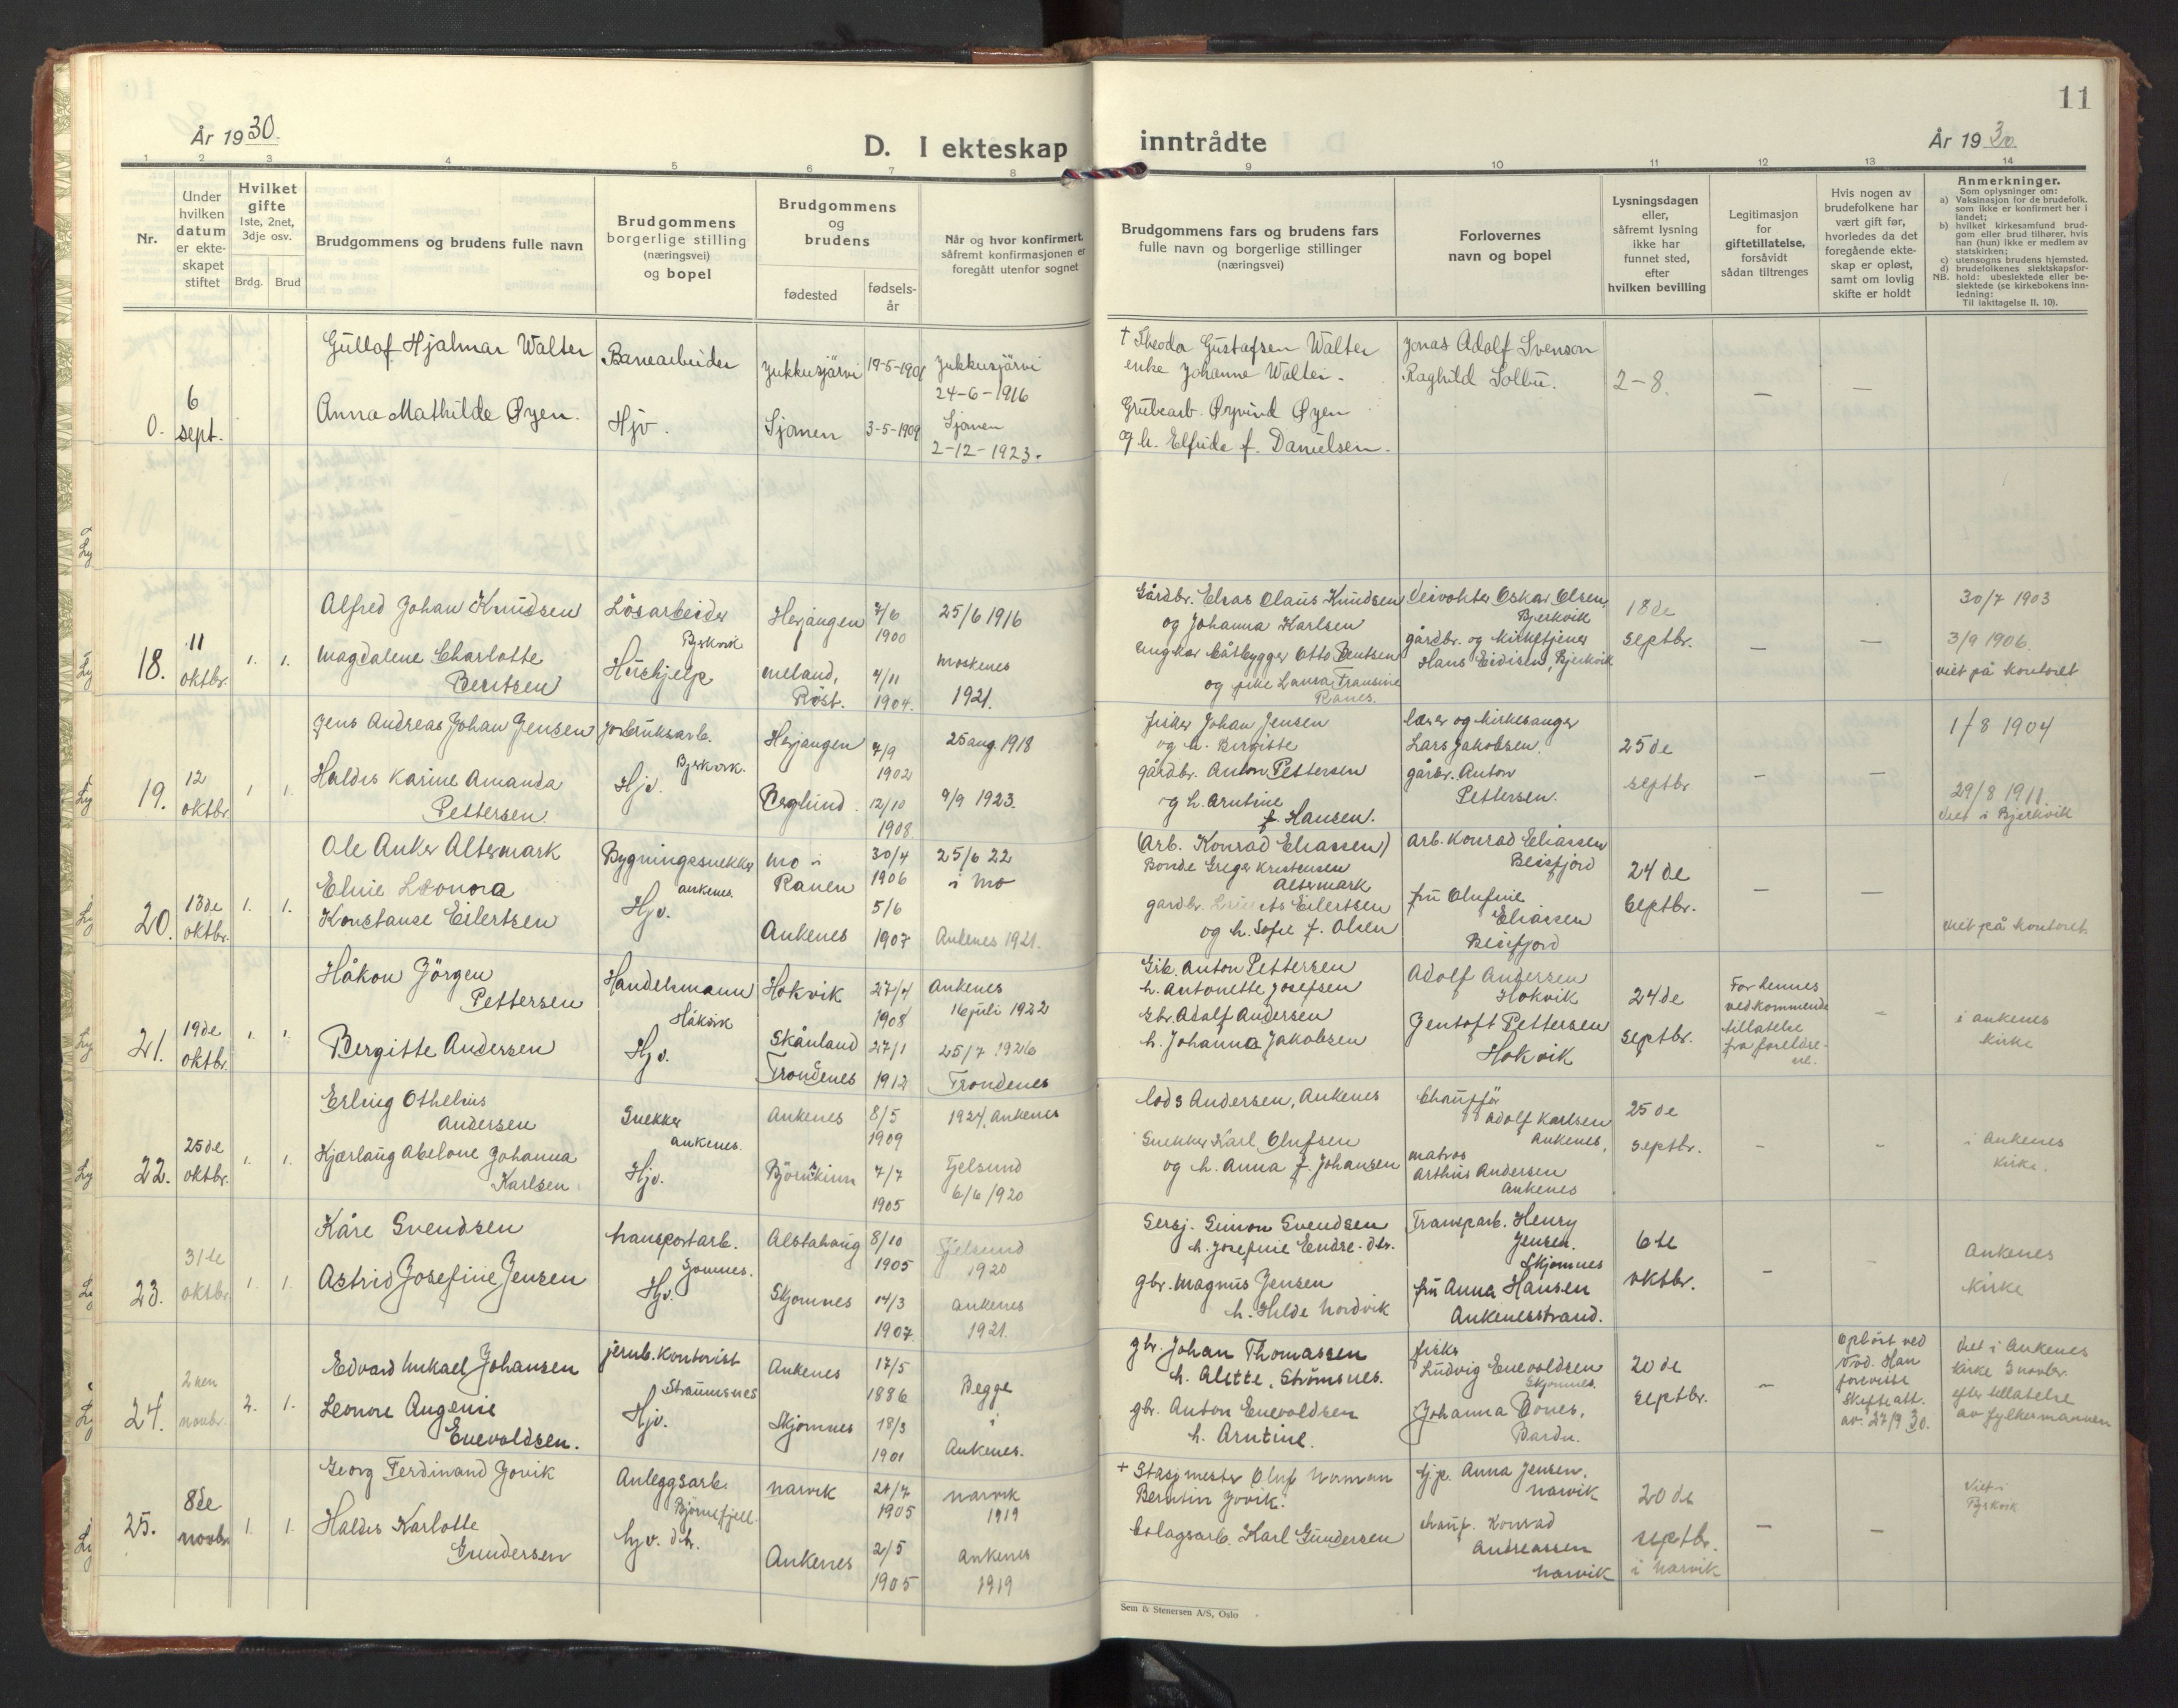 År 1930.
D. I ekteskap
1
2
3
4
5
6
7
8
Nr.
Under hvilken datum er ekte-skapet stiftet
Hvilket gifte
1ste, 2net, 3dje osv.
Brdg.
Brud
Brudgommens og brudens fulle navn
Brudgommens borgerlige stilling (næringsvei) og bopel
Brudgommens og brudens
fødested
fødsels-år
Når og hvor konfirmert, såfremt konfirmasjonen er foregått utenfor sognet
0.
6 sept.
Hjalmar Walter
Banearbeider
Jukkusjärvi
19-5-1901
Jukkusjärvi
24-6-1916
Anna Mathilde Øyen.
Hjv.
Sjånen
3-5-1909
Sjånen
2-12-1923.
18.
11 oktbr.
1.
1.
Alfred Johan Knudsen
Løsarbeider
Bjerkvik
Herjangen
7/6
1900
25/6 1916
Magdalene Charlotte
Berntsen
Hushjelp
Meland,
Röst.
4/11
1904.
Moskenes
1921.
19.
12 oktbr.
1
1.
Jens Andreas Johan Jensen
Jordbruksarb.
Bjerkvik.
Herjangen
7/9
1902
25 aug. 1918
Haldis Karine Amanda
Pettersen.
Hjv.
Berglund.
12/10
1908.
9/9 1923.
20.
13de oktbr.
1.
1.
Ole Anker Altermark
Bygningssnekker
Ankenes.
Mo i
Ranen
30/4
1906
25/6 22
i Mo
Elvie Leonora
Konstanse Eilertsen
Hjv.
Ankenes
5/6
1907
Ankenes 1921.
21.
19de oktbr.
1.
1.
Håkon Jörgen
Pettersen
Handelsmann
Håkvik
Hokvik
27/4
1908
Ankenes
16 juli 1922
Bergitte Andersen
Hjv.
Skånland
Trondenes
27/1
1912
25/7 1926
Trondenes
22.
25de oktbr.
1.
1.
Erling Othelius
Andersen
Snekker
Ankenes.
Ankenes
8/5
1909
1924, Ankenes
Kjærlaug Abelone Johanna
Karlsen
Hjv.
7/7
1905
Tjelsund
6/6 1920
23.
31te oktbr.
1.
1.
Kåre Svendsen
transportarb.
Alstahaug
8/10
1905
Tjelsund
1920
Astrid Josefine Jensen
Hjv.
Skjomnes
14/3
1907
Ankenes
1921.
24.
2nen novbr.
2.
1.
Edvard Mikael Johansen
jernb. kontorist
Straumsnes
Ankenes
17/5
1886
Begge
i
Ankenes.
Leonore Augenie
Enevoldsen.
Hjv.
Skjomnes
18/3
1901
25.
8de novbr.
1.
1.
Georg Ferdinand Jovik
Anleggsarb.
Björnefjell
Narvik
21/7
1905
Narvik
1919
Haldis Karlotte
Gundersen
hjv. dtr.
Ankenes
2/5
1905
Ankenes
1919
11
inntrådte
År 1930
9
10
11
12
13
14
Brudgommens fars og brudens fars fulle navn og borgerlige stillinger (næringsvei)
Forlovernes navn og bopel
Lysningsdagen eller, såfremt lysning ikke har funnet sted, efter hvilken bevilling
Legitimasjon for giftetillatelse, forsåvidt sådan tiltrenges
Hvis nogen av brudefolkene har vært gift før, hvorledes da det foregående ekte-skap er opløst, samt om lovlig skifte er holdt
Anmerkninger.
Som oplysninger om:
a) Vaksinasjon for de brudefolk, som ikke er konfirmert her i landet;
b) hvilket kirkesamfund brud-gom eller brud tilhører, hvis han (hun) ikke er medlem av statskirken;
c) utensogns brudens hjemsted.
d) brudefolkenes slektskapsfor-hold: ubeslektede eller be-slektede (se kirkebokens inn-ledning:
NB. Til iakttagelse II, 10).
† Theodor Gustafsen Walter
enke Johanne Walter.
Jonas Adolf Svenson
Raghild Solbu.
2-8.
Grubearb. Øyvind Øyen
og h. Elfride f. Danielsen.
Gårdbr. Elias Claus Knudsen
og Johanna Karlsen
Oskar Olsen,
Bjerkvik
18de septbr.
30/7 1903
Ungkar båtbygger Otto Bentsen
og pike Laura Fransine
Ranes.
gårdbr. og kirketjener
Hans Eidisen, Bjerkvik
3/9 1906.
viet på kontoret
fisker Johan Jensen
og h. Birgitte
lærer og kirkesanger
Lars Jakobsen.
25de septbr.
1/8 1904
gårdbr. Anton Pettersen
og h. Arntine
f. Hansen.
gårbr. Anton
Pettersen.
29/8 1911.
viet i Bjerkvik
(Arb. Konrad Eliassen)
Bonde Greger Kristensen
Altermark
Arb. Konrad Eliassen
Beisfjord
24de septbr.
gårdbr. Eilertsen
og h. Sofie f. Olsen
fru Olufine
Eliassen
Beisfjord
viet på kontoret
Grb. Anton Pettersen
h. Antonette Josefsen
Adolf Andersen
Hokvik
24de septbr.
For hennes
vedkommende
tillatelse
fra foreldre-
ne.
i Ankenes
kirke
Gbr. Adolf Andersen
h. Johanna Jakobsen
Gentoft Pettersen
Hokvik
lods Andersen, Ankenes
Chaufför
Adolf Karlsen
Ankenes,
25de septbr.
i Ankenes
kirke.
Snekker Karl Olufsen
og h. Anna f. Johansen
matros
Arthur Andersen
Ankenes
Sersj. Simon Svendsen
h. Josefine Endre-dtr.
Transp.arb. Henry
Jensen.
Skjomnes
6te oktbr.
Ankenes
kirke
gbr. Magnus Jensen
h. Hilde Nordvik
fru Anna Hansen
Ankenesstrand.
gbr. Johan Thomassen
h. Alette, Strømsnes.
fisker
Ludvig Enevoldsen
Skjomnes.
20de septbr.
Oplöst ved
död. Han
foreviste
skifteatt.
av 27/9 30.
Viet i Ankenes
kirke 2 novbr.
efter tillatelse
av fylkesmannen
gbr. Anton Enevoldsen
h. Arntine.
Johanna Bones,
Bardu.
+ Stasj.mester Oluf Norman
Berntin Jovik.
hjp. Anna Jensen,
Narvik
20de septbr.
i Narvik
Viet i
Bjerkvik
bolagsarb. Karl Gundersen
chauf. Konrad
Andreassen
Narvik
Sem & Stenersen A/S, Oslo